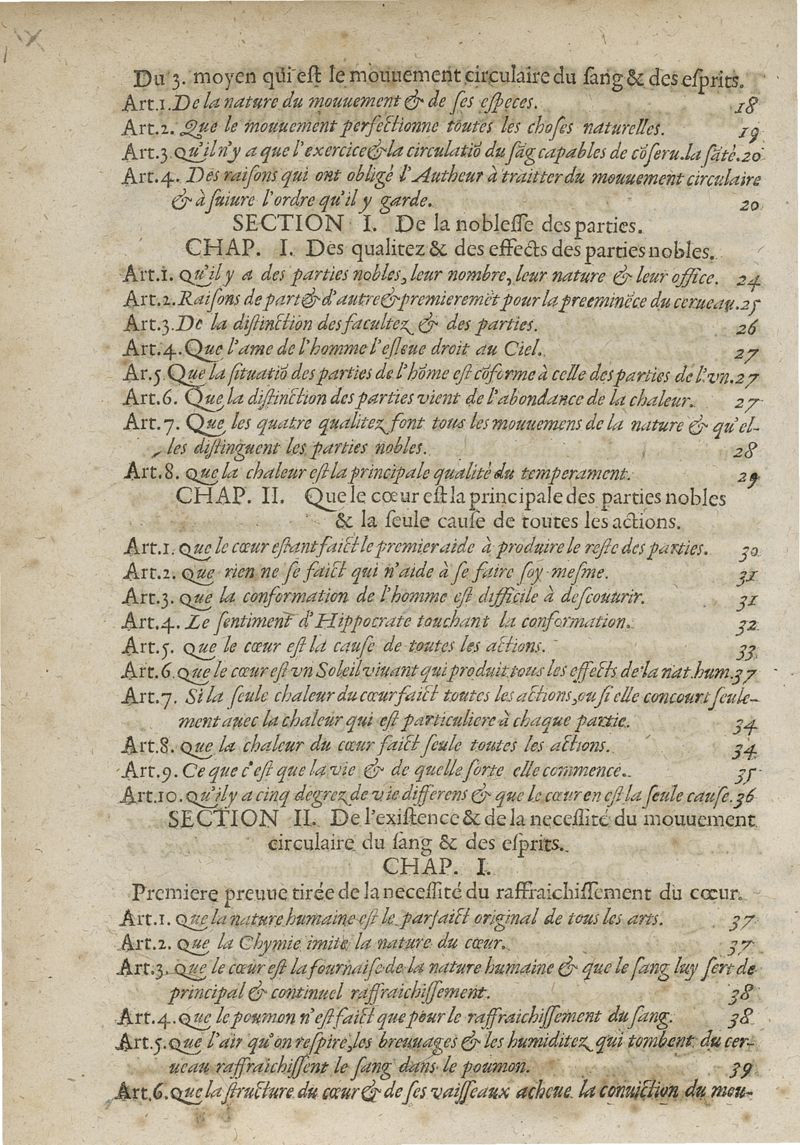 Du 3. moyen qui eſt le mouuement circulaire du ſang & des eſprits.
Art.1. De la nature du mouuement & de ſes eſpeces. 18
Art.2. Que le mouuement perfectionne toutes les choſes naturelles. 19
Art.3. Qu'il n'y a que l'exercice & la circulatiõ du ſãg capables de cõſeru. la ſãté. 20
Art.4. Des raiſons qui ont obligé l'Autheur à traitter du mouuement circulaire
& à ſuiure l'ordre qu'il y garde. 20
SECTION I. De la nobleſſe des parties.
CHAP. I. Des qualitez & des effects des parties nobles.
Art.1. Qu'il y a des parties nobles, leur nombre, leur nature & leur office. 24
Art.2. Raiſons de part & d'autre & premieremẽt pour la preeminẽce du cerueau. 25
Art.3. De la diſtinction des facultez & des parties. 26
Art.4. Que l'ame de l'homme l'eſleue droit au Ciel. 27
Ar.5 Que la ſituatiõ des parties de l'hõme eſt cõforme à celle des parties de l'vn. 27
Art.6. Que la diſtinction des parties vient de l'abondance de la chaleur. 27
Art.7. Que les quatre qualitez font tous les mouuemens de la nature & qu'el-
les diſtinguent les parties nobles. 28
Art.8. Que la chaleur eſt la principale qualité du temperament. 29
CHAP. II. Que le cœur eſt la principale des parties nobles
& la ſeule cauſe de toutes les actions.
Art.1. Que le cœur eſtant faict le premier aide à produire le reſte des parties. 30
Art.2. Que rien ne ſe faict qui n'aide à ſe faire ſoy-meſme. 31
Art.3. Que la conformation de l'homme eſt difficile à deſcouurir. 31
Art.4. Le ſentiment d'Hippocrate touchant la conformation. 32
Art.5. Que le cœur eſt la cauſe de toutes les actions. 33
Art.6. Que le cœur eſt vn Soleil viuant qui produit tous les effects de la nat. hum. 37
Art.7. Si la ſeule chaleur du cœur faict toutes les actions, ou ſi elle concourt ſeule-
ment auec la chaleur qui eſt particuliere à chaque partie. 34
Art.8. Que la chaleur du cœur faict ſeule toutes les actions. 34
Art.9. Ce que c'eſt que la vie & de quelle ſorte elle commence. 35
Art.10. Qu'il y a cinq degrez de vie differens & que le cœur en eſt la ſeule cauſe. 36
SECTION II. De l'exiſtence & de la neceſſité du mouuement
circulaire du ſang & des eſprits.
CHAP. I.
Premiere preuue tirée de la neceſſité du raffraichiſſement du cœur.
Art.1. Que la nature humaine eſt le parfaict original de tous les arts. 37
Art.2. Que la Chymie imite la nature du cœur. 37
Art.3. Que le cœur eſt la fournaiſe de la nature humaine & que le ſang luy ſert de
principal & continuel raffraichiſſement. 38
Art.4. Que le poumon n'eſt faict que pour le raffraichiſſement du ſang. 38
Art.5. Que l'air qu'on reſpire, les breuuages & les humiditez qui tombent du cer-
ueau raffraichiſſent le ſang dans le poumon. 39
Art.6. Que la ſtructure du cœur & de ſes vaiſſeaux acheue la conuiction du mou-